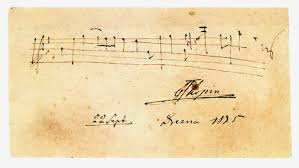 Chopin
22 Sept. Drezno 1835